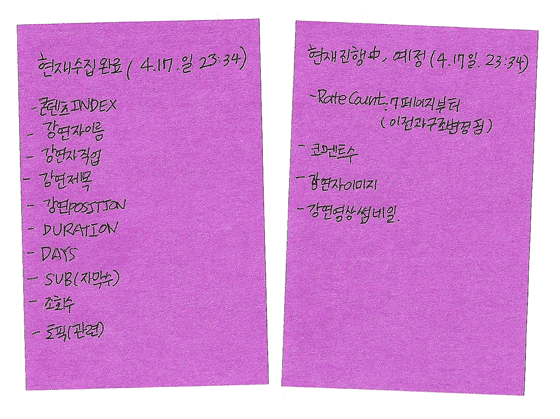 현재수집완료 ( 4.17.일 23:34)
- 콘텐츠 INDEX
- 강연자이름
- 강연자직업
- 강연제목
- 강연POSITION
- DURATION
- DAYS
- SUB(자막수)
- 조회수
- 토픽(관련)
현재진행中, 예정 (4.17일. 23:34)
- Rate Count. 7페이지부터
(이전과구조변경됨)
- 코멘트수
- 강연자이미지
- 강연영상썸네일.